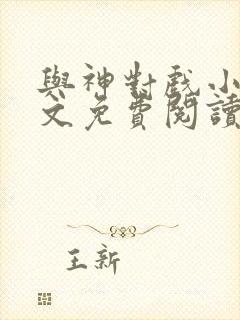 與神對戲小
文免費閱讀
王新